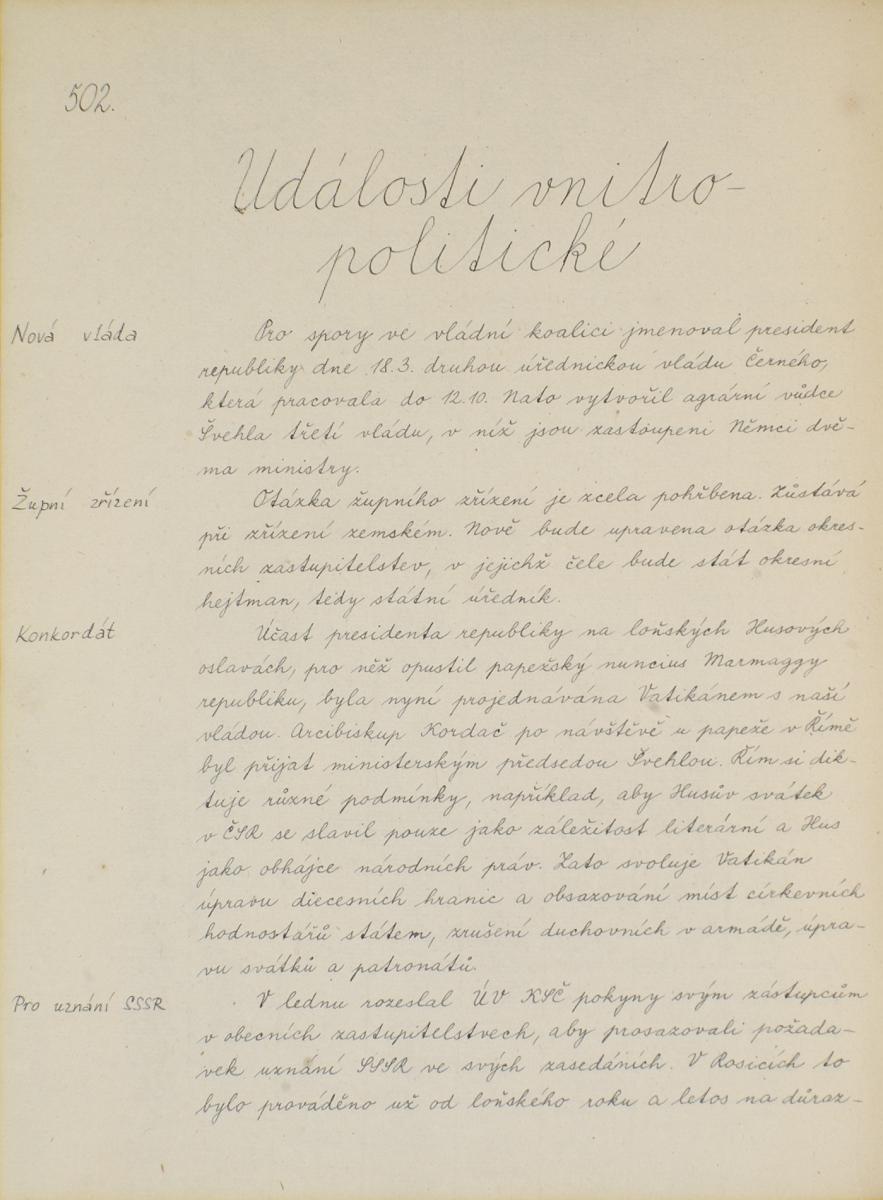 502.
Události vnitro-
politické
Nová vláda
Pro spory ve vládní koalici jmenoval president
republiky dne 18.3. druhou úřednickou vládu Černého,
která pracovala do 12.10. Nato vytvořil agrární vůdce
Švehla třetí vládu, v níž jsou zastoupeni Němci dvě-
ma ministry.
Župní zřízení
Otázka župního zřízení je zcela pohřbena. Zůstává
při zřízení zemském. Nově bude upravena otázka okres-
ních zastupitelstev, v jejichž čele bude stát okresní
hejtman, tedy státní úředník.
Konkordát
Účast presidenta republiky na loňských Husových
oslavách, pro něž opustil papežský nuncius Marmaggy
republiku, byla nyní projednávána Vatikánem s naší
vládou. Arcibiskup Kordač po návštěvě u papeže v Římě
byl přijat ministerským předsedou Švehlou. Řím si dik-
tuje různé podmínky, například, aby Husův svátek
v ČSR se slavil pouze jako záležitost literární a Hus
jako obhájce národních práv. Zato svoluje Vatikán
úpravu diecesních hranic a obsazování míst církevních
hodnostářů státem, zrušení duchovních v armádě, úpra-
vu svátků a patronátů.
Pro uznání SSSR
V lednu rozeslal ÚV KSČ pokyny svým zástupcům
v obecních zastupitelstvech, aby prosazovali požada-
vek uznání SSSR ve svých zasedáních. V Rosicích to
bylo prováděno už od loňského roku a letos na důraz-